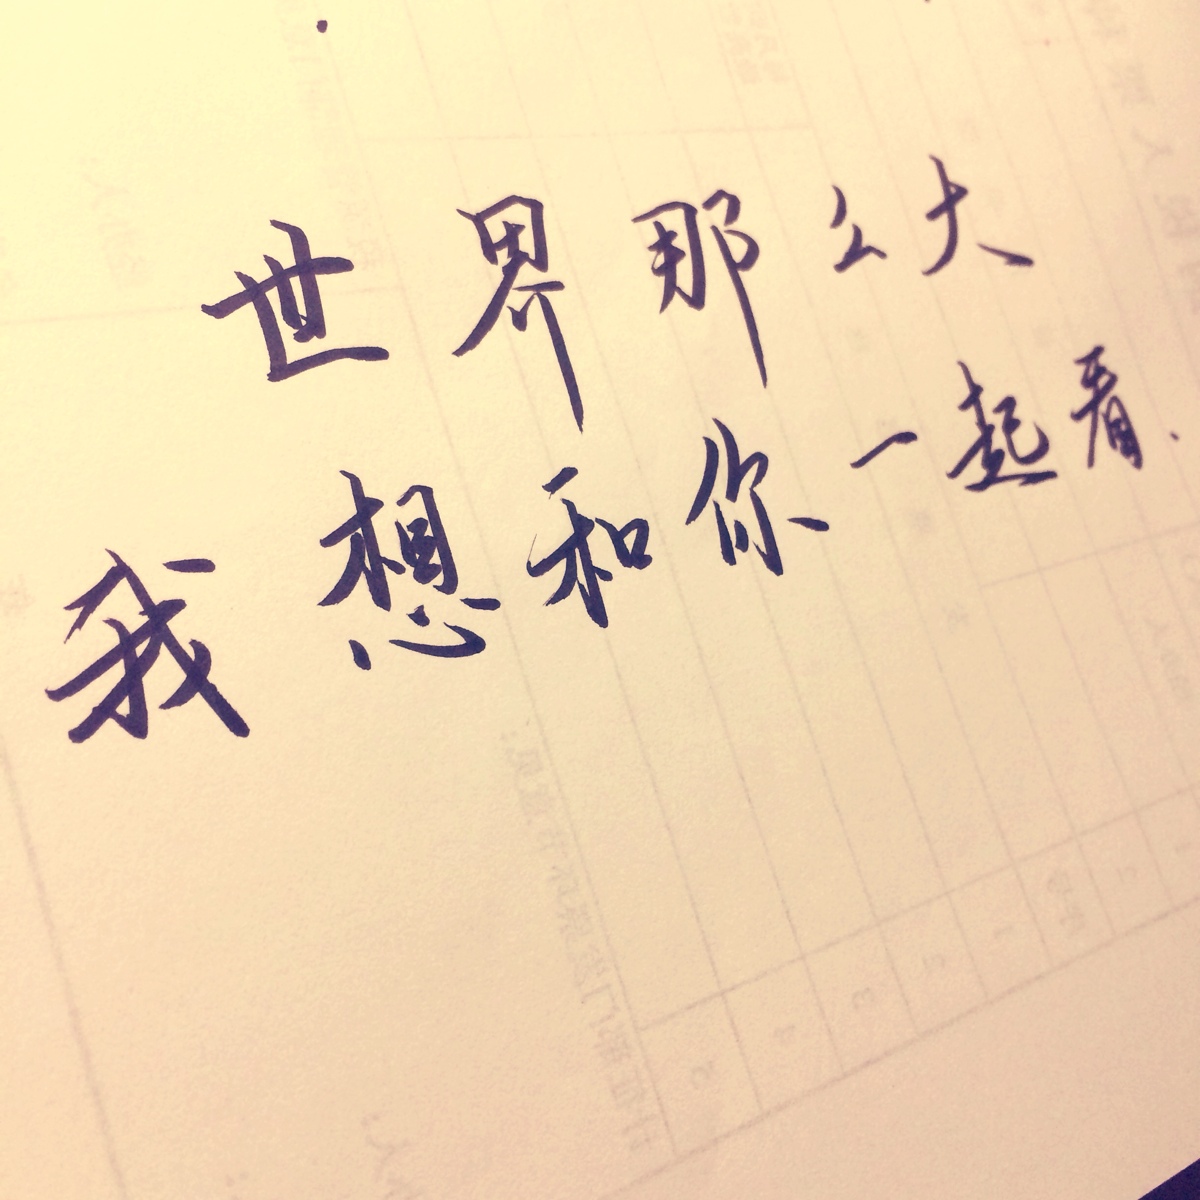 世界那么大
我想和你一起看.